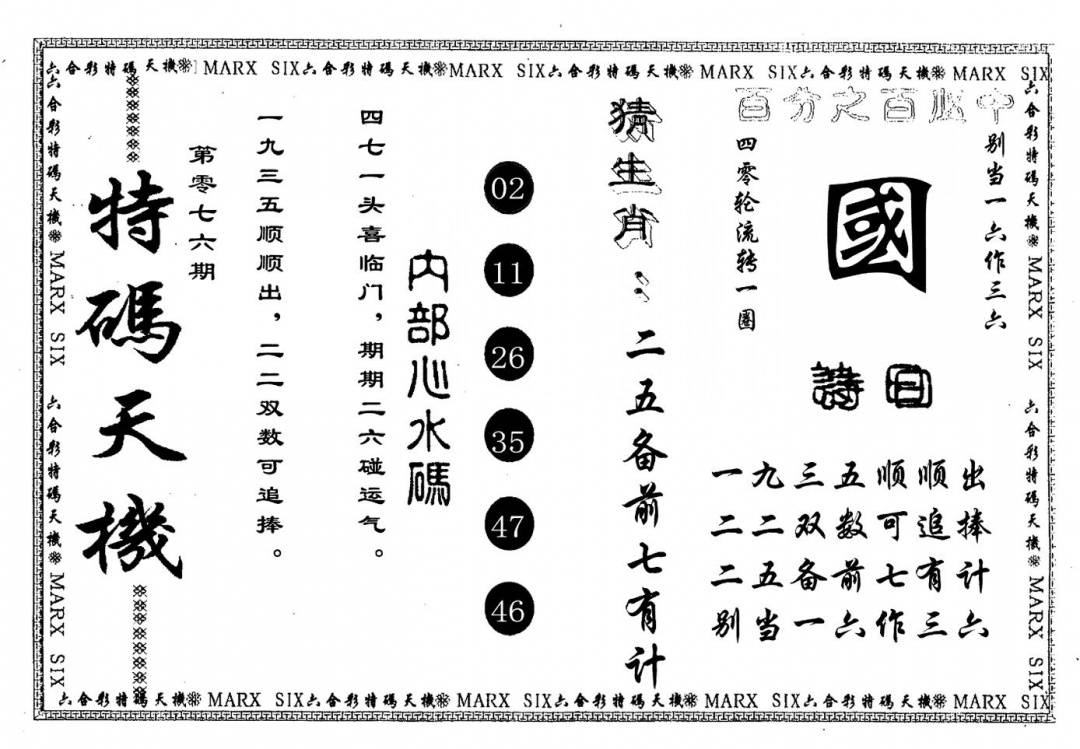 六合彩特碼天機❊ MARX SIX六合彩特碼天機❊MARX SIX六合彩特碼天機❊ MARX SIX六合彩特碼天機❊ MARX SIX
六合彩特碼天機❊ MARX SIX 六合彩特碼天機❊ MARX SIX
特碼天機
第零七六期
一九三五顺顺出，二二双数可追捧。
四七一头喜临门，期期二六碰运气。
内部心水碼
02
11
26
35
47
46
猜生肖：二五备前七有计
百分之百必中
四零轮流转一圈
國
别当一六作三六
詩曰
一九三五顺顺出
二二双数可追捧
二五备前七有计
别当一六作三六
六合彩特碼天機❊ MARX SIX 六合彩特碼天機❊ MARX SIX
六合彩特碼天機❊ MARX SIX六合彩特碼天機❊ MARX SIX六合彩特碼天機❊ MARX SIX六合彩特碼天機❊ MARX SIX